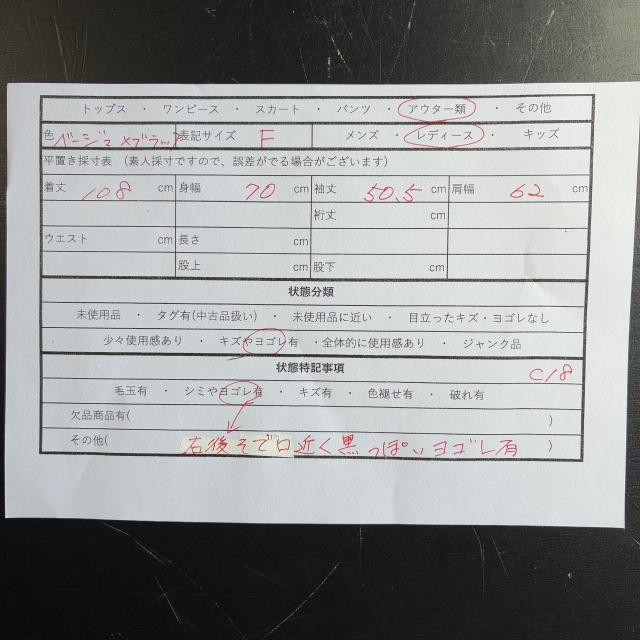 トップス ・ ワンピース ・ スカート ・ パンツ ・ アウター類 ・ その他
色 ベージュ×ブラック 表記サイズ F メンズ ・ レディース ・ キッズ
平置き採寸表 (素人採寸ですので、誤差がでる場合がございます)
着丈 108 cm 身幅 70 cm 袖丈 50.5 cm 肩幅 62 cm
裄丈 cm
ウエスト cm 長さ cm
股上 cm 股下 cm
状態分類
未使用品 ・ タグ有(中古品扱い) ・ 未使用品に近い ・ 目立ったキズ・ヨゴレなし
少々使用感あり ・ キズやヨゴレ有 ・全体的に使用感あり ・ ジャンク品
状態特記事項 C18
毛玉有 ・ シミやヨゴレ有 ・ キズ有 ・ 色褪せ有 ・ 破れ有
欠品商品有( )
その他( 右後そで口近く黒っぽいヨゴレ有 )